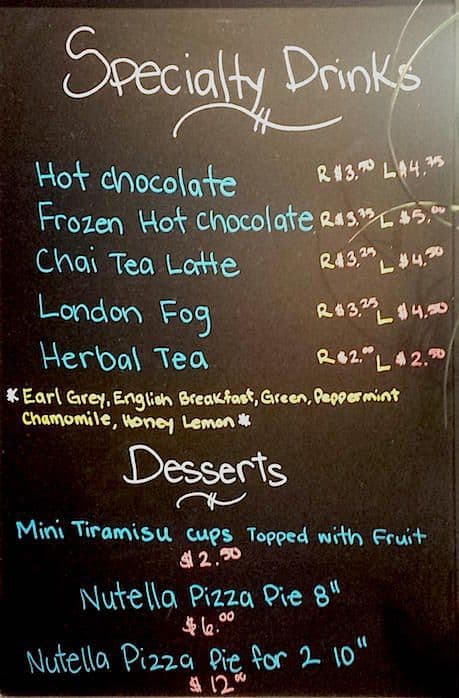 Specialty Drinks
Hot chocolate R $3.50 L $4.75
Frozen Hot Chocolate R $3.75 L $5.00
Chai Tea Latte R $3.25 L $4.50
London Fog R $3.25 L $4.50
Herbal Tea R $2.00 L $2.50
* Earl Grey, English Breakfast, Green, Peppermint
Chamomile, Honey Lemon *
Desserts
Mini Tiramisu cups Topped with Fruit
$2.50
Nutella Pizza Pie 8"
$6.00
Nutella Pizza Pie for 2 10"
$12.00